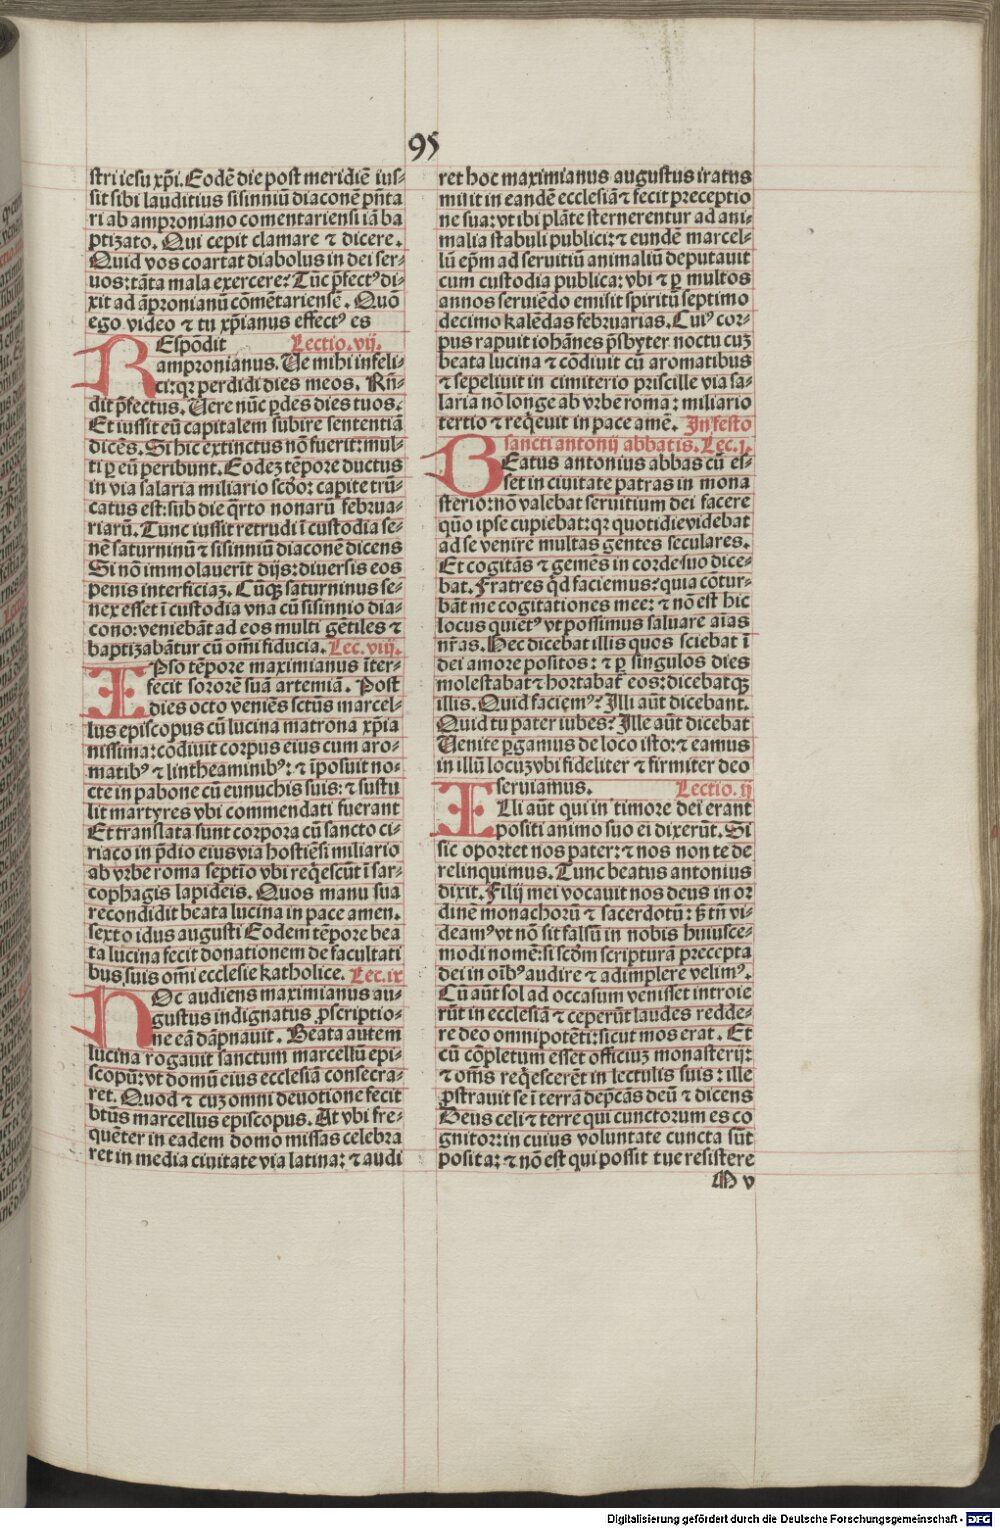 95
stri iesu xp̄i. Eodē die post meridiē ius⸗
sit sibi lauditius sisinniū diaconē p̄nta
ri ab amproniano comentariensi iā ba
ptizato. Qui cepit clamare ⁊ dicere.
Quid vos coartat diabolus in dei ser⸗
uos: tāta mala exercere? Tūc p̄fectꝰ di⸗
xit ad āpronianū cōmētariensē. Quō
ego video ⁊ tu xp̄ianus effectꝰ es
REspōdit Lectio. vij.
ampronianus. Ve mihi infeli⸗
ci: qꝛ perdidi dies meos. Rn̄⸗
dit p̄fectus. Vere nūc ꝑdes dies tuos.
Et iussit eū capitalem subire sententiā
dicēs. Si hic extinctus nō fuerit: mul⸗
ti ꝑ eū peribunt. Eodez tēpore ductus
in via salaria miliario scd̄o: capite trū⸗
catus est: sub die q̄rto nonarū februa⸗
riarū. Tunc iussit retrudi ī custodia se⸗
nē saturninū ⁊ sisinniū diaconē dicens
Si nō immolauerit dijs: diuersis eos
penis interficiaz. Cūqꝫ saturninus se⸗
nex esset ī custodia vna cū sisinnio dia⸗
cono: veniebāt ad eos multi gētiles ⁊
baptizabātur cū om̄i fiducia. Lec. viij.
IPso tēpore maximianus īter⸗
fecit sororē suā artemiā. Post
dies octo veniēs sctūs marcel⸗
lus episcopus cū lucina matrona xp̄ia
nissima: cōdiuit corpus eius cum aro⸗
matibꝰ ⁊ lintheaminibꝰ: ⁊ īposuit no⸗
cte in pabone cū eunuchis suis: ⁊ sustu
lit martyres vbi commendati fuerant
Et translata sunt corpora cū sancto ci⸗
riaco in p̄dio eius via hostiēsi miliario
ab vrbe roma septīo vbi req̄escūt ī sar⸗
cophagis lapideis. Quos manu sua
recondidit beata lucina in pace amen.
sexto idus augusti Eodem tēpore bea
ta lucina fecit donationem de facultati
bus suis om̄i ecclesie katholice. Lec. ix
HOc audiens maximianus au⸗
gustus indignatus ꝓscriptio⸗
ne eā dāpnauit. Beata autem
lucina rogauit sanctum marcellū epi⸗
scopū: vt domū eius ecclesiā consecra⸗
ret. Quod ⁊ cuz omni deuotione fecit
btūs marcellus episcopus. At vbi fre⸗
quēter in eadem domo missas celebra
ret in media ciuitate via latina: ⁊ audi
ret hoc maximianus augustus iratus
misit in eandē ecclesiā ⁊ fecit preceptio
ne sua: vt ibi plāte sternerentur ad ani⸗
malia stabuli publici: ⁊ eundē marcel⸗
lū ep̄m ad seruitiū animaliū deputauit
cum custodia publica: vbi ⁊ ꝑ multos
annos seruiēdo emisit spiritū septimo
decimo kalēdas februarias. Cuiꝰ cor⸗
pus rapuit iohānes p̄sbyter noctu cuz
beata lucina ⁊ cōdiuit cū aromatibus
⁊ sepeliuit in cimiterio priscille via sa⸗
laria nō longe ab vrbe roma: miliario
tertio ⁊ req̄euit in pace amē. In festo
sancti antonij abbatis. Lec. j.
BEatus antonius abbas cū es⸗
set in ciuitate patras in mona
sterio: nō valebat seruitium dei facere
quō ipse cupiebat: qꝛ quotidie videbat
ad se venire multas gentes seculares.
Et cogitās ⁊ gemēs in corde suo dice⸗
bat. Fratres q̄d faciemus? quia cōtur⸗
bāt me cogitationes mee: ⁊ nō est hic
locus quietꝰ vt possimus saluare aīas
nr̄as. Hec dicebat illis quos sciebat ī
dei amore positos: ⁊ ꝑ singulos dies
molestabat ⁊ hortabat᷑ eos: dicebatqꝫ
illis. Quid faciemꝰ? Illi aūt dicebant.
Quid tu pater iubes? Ille aūt dicebat
Venite ꝑgamus de loco isto: ⁊ eamus
in illū locuz vbi fideliter ⁊ firmiter deo
seruiamus. Lectio. ij
ILli aūt qui in timore dei erant
positi animo suo ei dixerūt. Si
sic oportet nos pater: ⁊ nos non te de
relinquimus. Tunc beatus antonius
dixit. Filij mei vocauit nos deus in or
dinē monachorū ⁊ sacerdotū: s̄ tn̄ vi⸗
deamꝰ vt nō sit falsū in nobis huiusce⸗
modi nomē: si scd̄m scripturā precepta
dei in oībꝰ audire ⁊ adimplere velimꝰ.
Cū aūt sol ad occasum venisset introie
rūt in ecclesiā ⁊ ceperūt laudes redde⸗
re deo omnipotēti: sicut mos erat. Et
cū cōpletum esset officiuz monasterij:
⁊ om̄s req̄escerēt in lectulis suis: ille
ꝓstrauit se ī terrā dep̄cās deū ⁊ dicens
Deus celi ⁊ terre qui cunctorum es co
gnitor: in cuius voluntate cuncta sūt
posita: ⁊ nō est qui possit tue resistere
M v
Digitalisierung gefördert durch die Deutsche Forschungsgemeinschaft - DFG